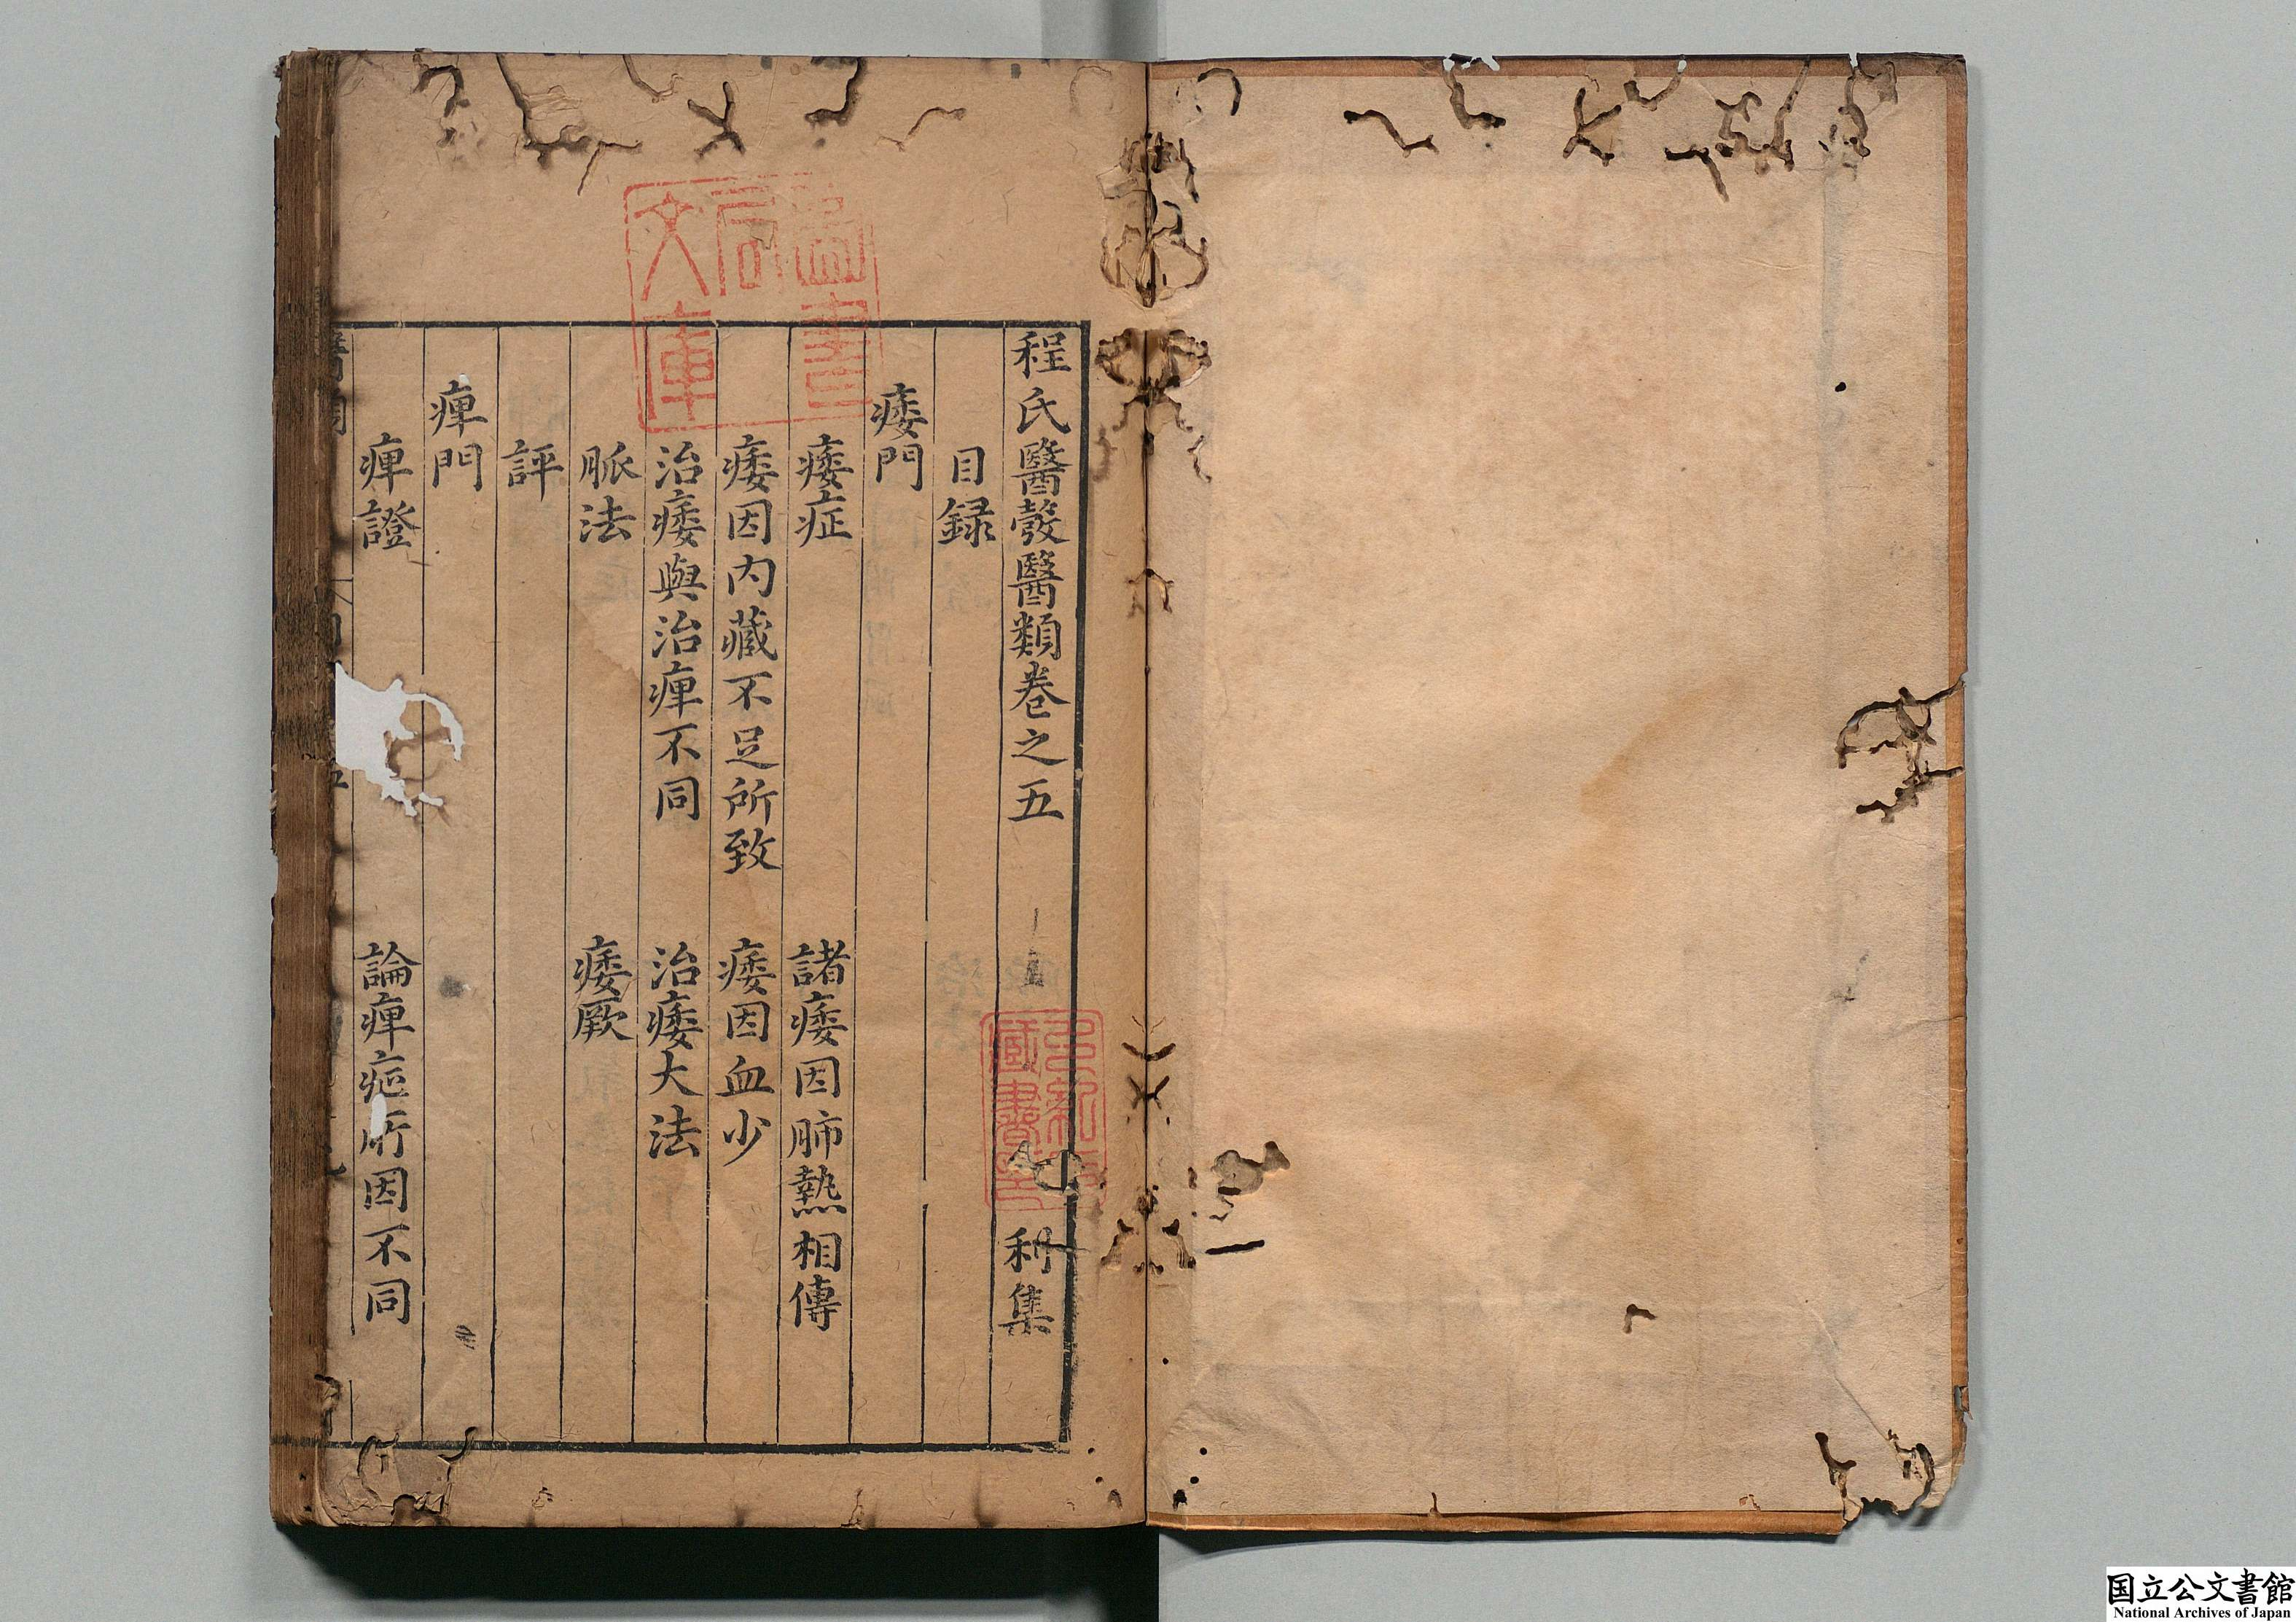 程氏醫彀醫類卷之五 利集
目録
痿門
痿症 諸痿因肺熱相傳
痿因内藏不足所致 痿因血少
治痿與治痺不同 治痿大法
脈法 痿厥
評
痺門
痺證 論痺疝所因不同
圖書
局
文庫
国立公文書館
National Archives of Japan